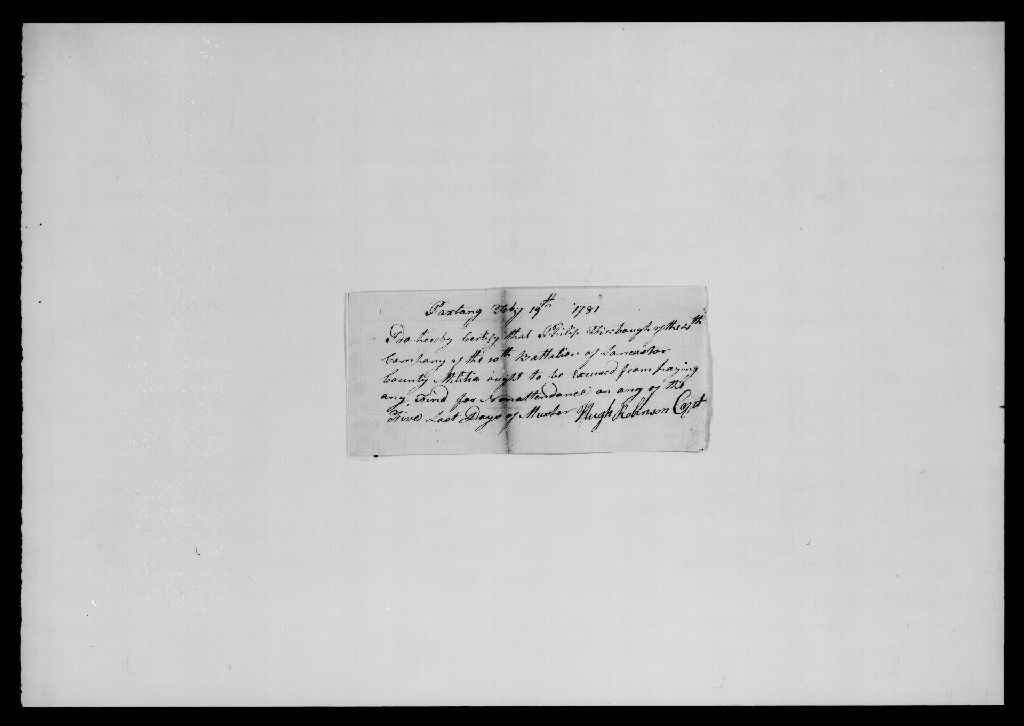 Paxtang Feby 19th 1781
I Do hereby Certify that Philip Firebaugh of the 4th
Company of the 10th Battalion of Lancaster
County Militia ought to be Excused from paying
any Find for Nonattendance on any of the
Five Last Days of Muster Hugh Robinson Capt